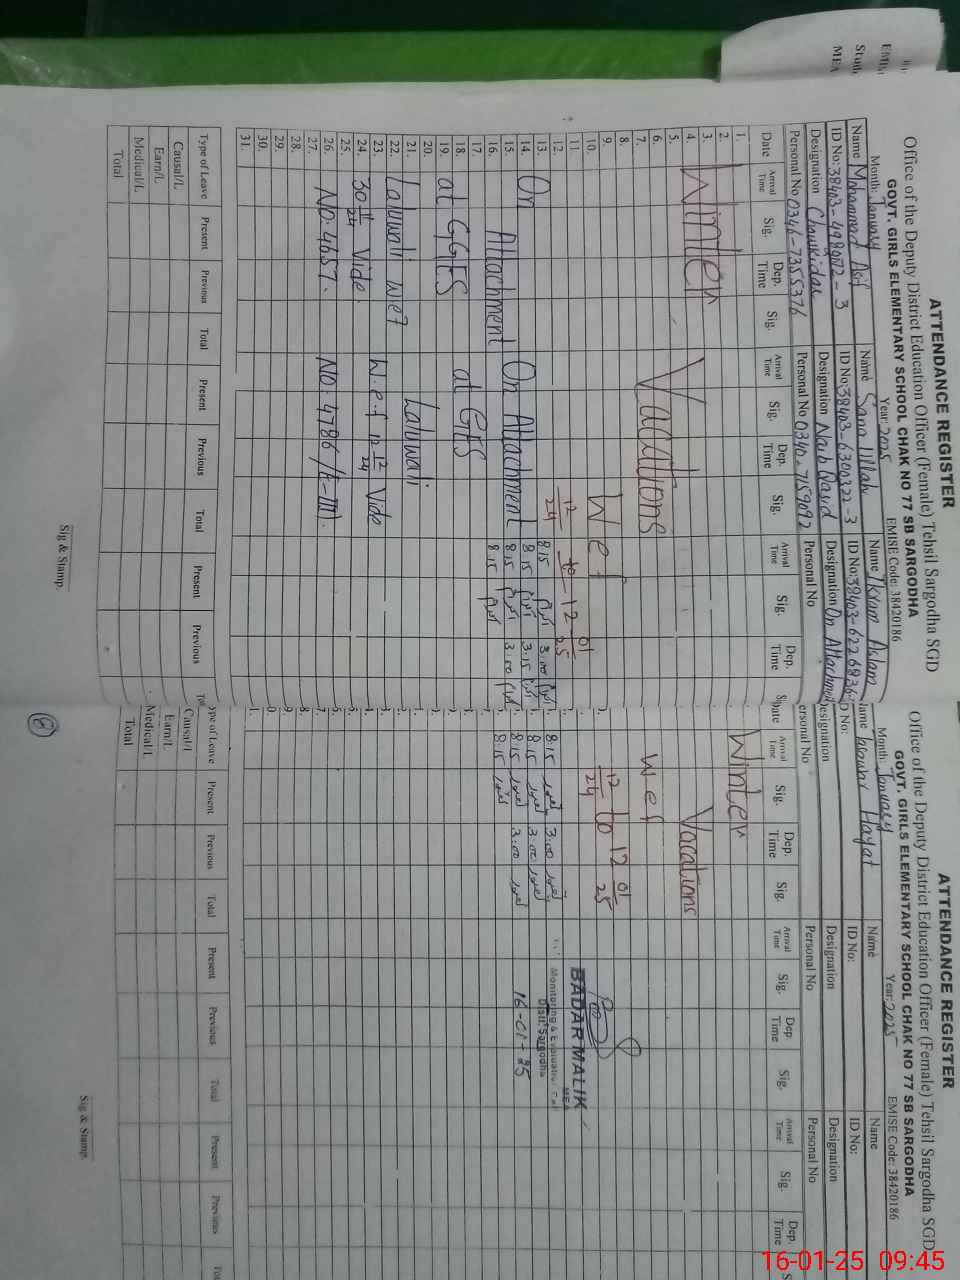 ATTENDANCE REGISTER
Office of the Deputy District Education Officer (Female) Tehsil Sargodha SGD
GOVT. GIRLS ELEMENTARY SCHOOL CHAK NO 77 SB SARGODHA
Month: January Year: 2025 EMISE Code: 38420186
Name Mohammad Asif Name Sana Ullah Name Ikram Aslam
ID No: ID No: 38403-6300322-3 ID No: 38403-6226836-
Designation Chowkidar Designation Naib Qasid Designation On Attachment
Personal No 0346-7355376 Personal No 0340-7159092 Personal No
Date Arrival Time Sig. Dep. Time Sig. Arrival Time Sig. Dep. Time Sig. Arrival Time Sig. Dep. Time
1.
2.
3.
4. Winter
5. Vacations
6.
7.
8.
9. Wef
10.
11.
12. 12/24 to 12 01/25
13. 8:15 3:00
14. On On Attachment 8:15 3:15
15. 8:15 3:00
16. Attachment 8:15
17.
18. at GES
19. at GGES
20.
21. Laluwali
22. Laluwali wef
23. W.e.f 12-12/24 Vide
24. 30 11/24 Vide
25.
26. No: 4657. No: 4786/E-III).
27.
28.
29.
30.
31.
Type of Leave Present Previous Total Present Previous Total Present Previous
Causal/L
Earn/L
Medical/L
Total
Sig & Stamp.
ATTENDANCE REGISTER
Office of the Deputy District Education Officer (Female) Tehsil Sargodha SGD
GOVT. GIRLS ELEMENTARY SCHOOL CHAK NO 77 SB SARGODHA
Month: January Year: 2025 EMISE Code: 38420186
Hayat Name Name
ID No: ID No:
Designation Designation
Personal No Personal No
Arrival Time Sig. Dep. Time Sig. Arrival Time Sig. Dep. Time Sig. Arrival Time Sig. Dep. Time
Winter
Vacations
Wef
12/24 to 12 01/25
8:15 3:00
8:15 3:00
8:15 3:00
8:15
BADAR MALIK
MEA
Monitoring & Evaluation
Distt. Sargodha
16-01-25
Present Previous Total Present Previous Total Present Previous
Causal/L
Earn/L
Medical/L
Total
Sig & Stamp.
16-01-25 09:45